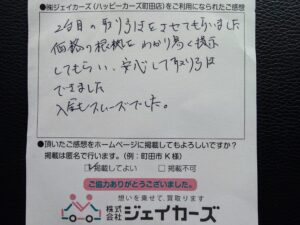 ●㈱ジェイカーズ(ハッピーカーズ町田店)をご利用になられたご感想
2台目の取り引きをさせてもらいました
価格の根拠をわかり易く提示
してもらい、安心して取り引き
できました
入金もスムーズでした。
●頂いたご感想をホームページに掲載してもよろしいですか?
掲載は匿名で行います。(例:町田市K様)
掲載してよい □掲載不可
ご協力ありがとうございました。
想いを乗せて、買取ります
株式会社ジェイカーズ